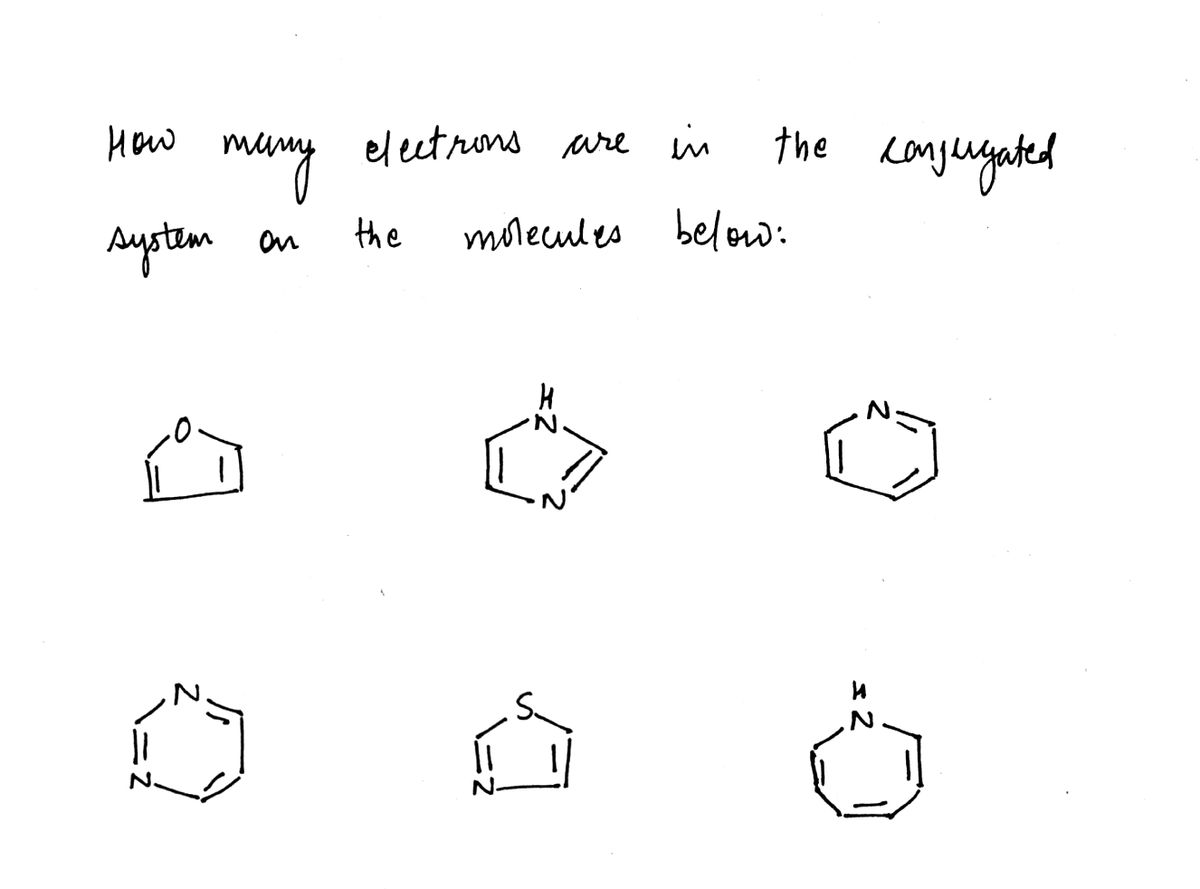 How many electrons are in the conjugated
system on the molecules below:
O
H
N
N
N
N
N
S
N
H
N